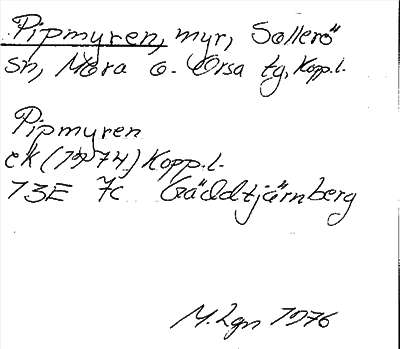 Pipmyren, myr, Sollerö
sn, Mora o. Orsa tg, Kopp.l.
Pipmyren
ek (1974) Kopp.l.
13E 7c Gäddtjärnberg
M. Lgn 1976